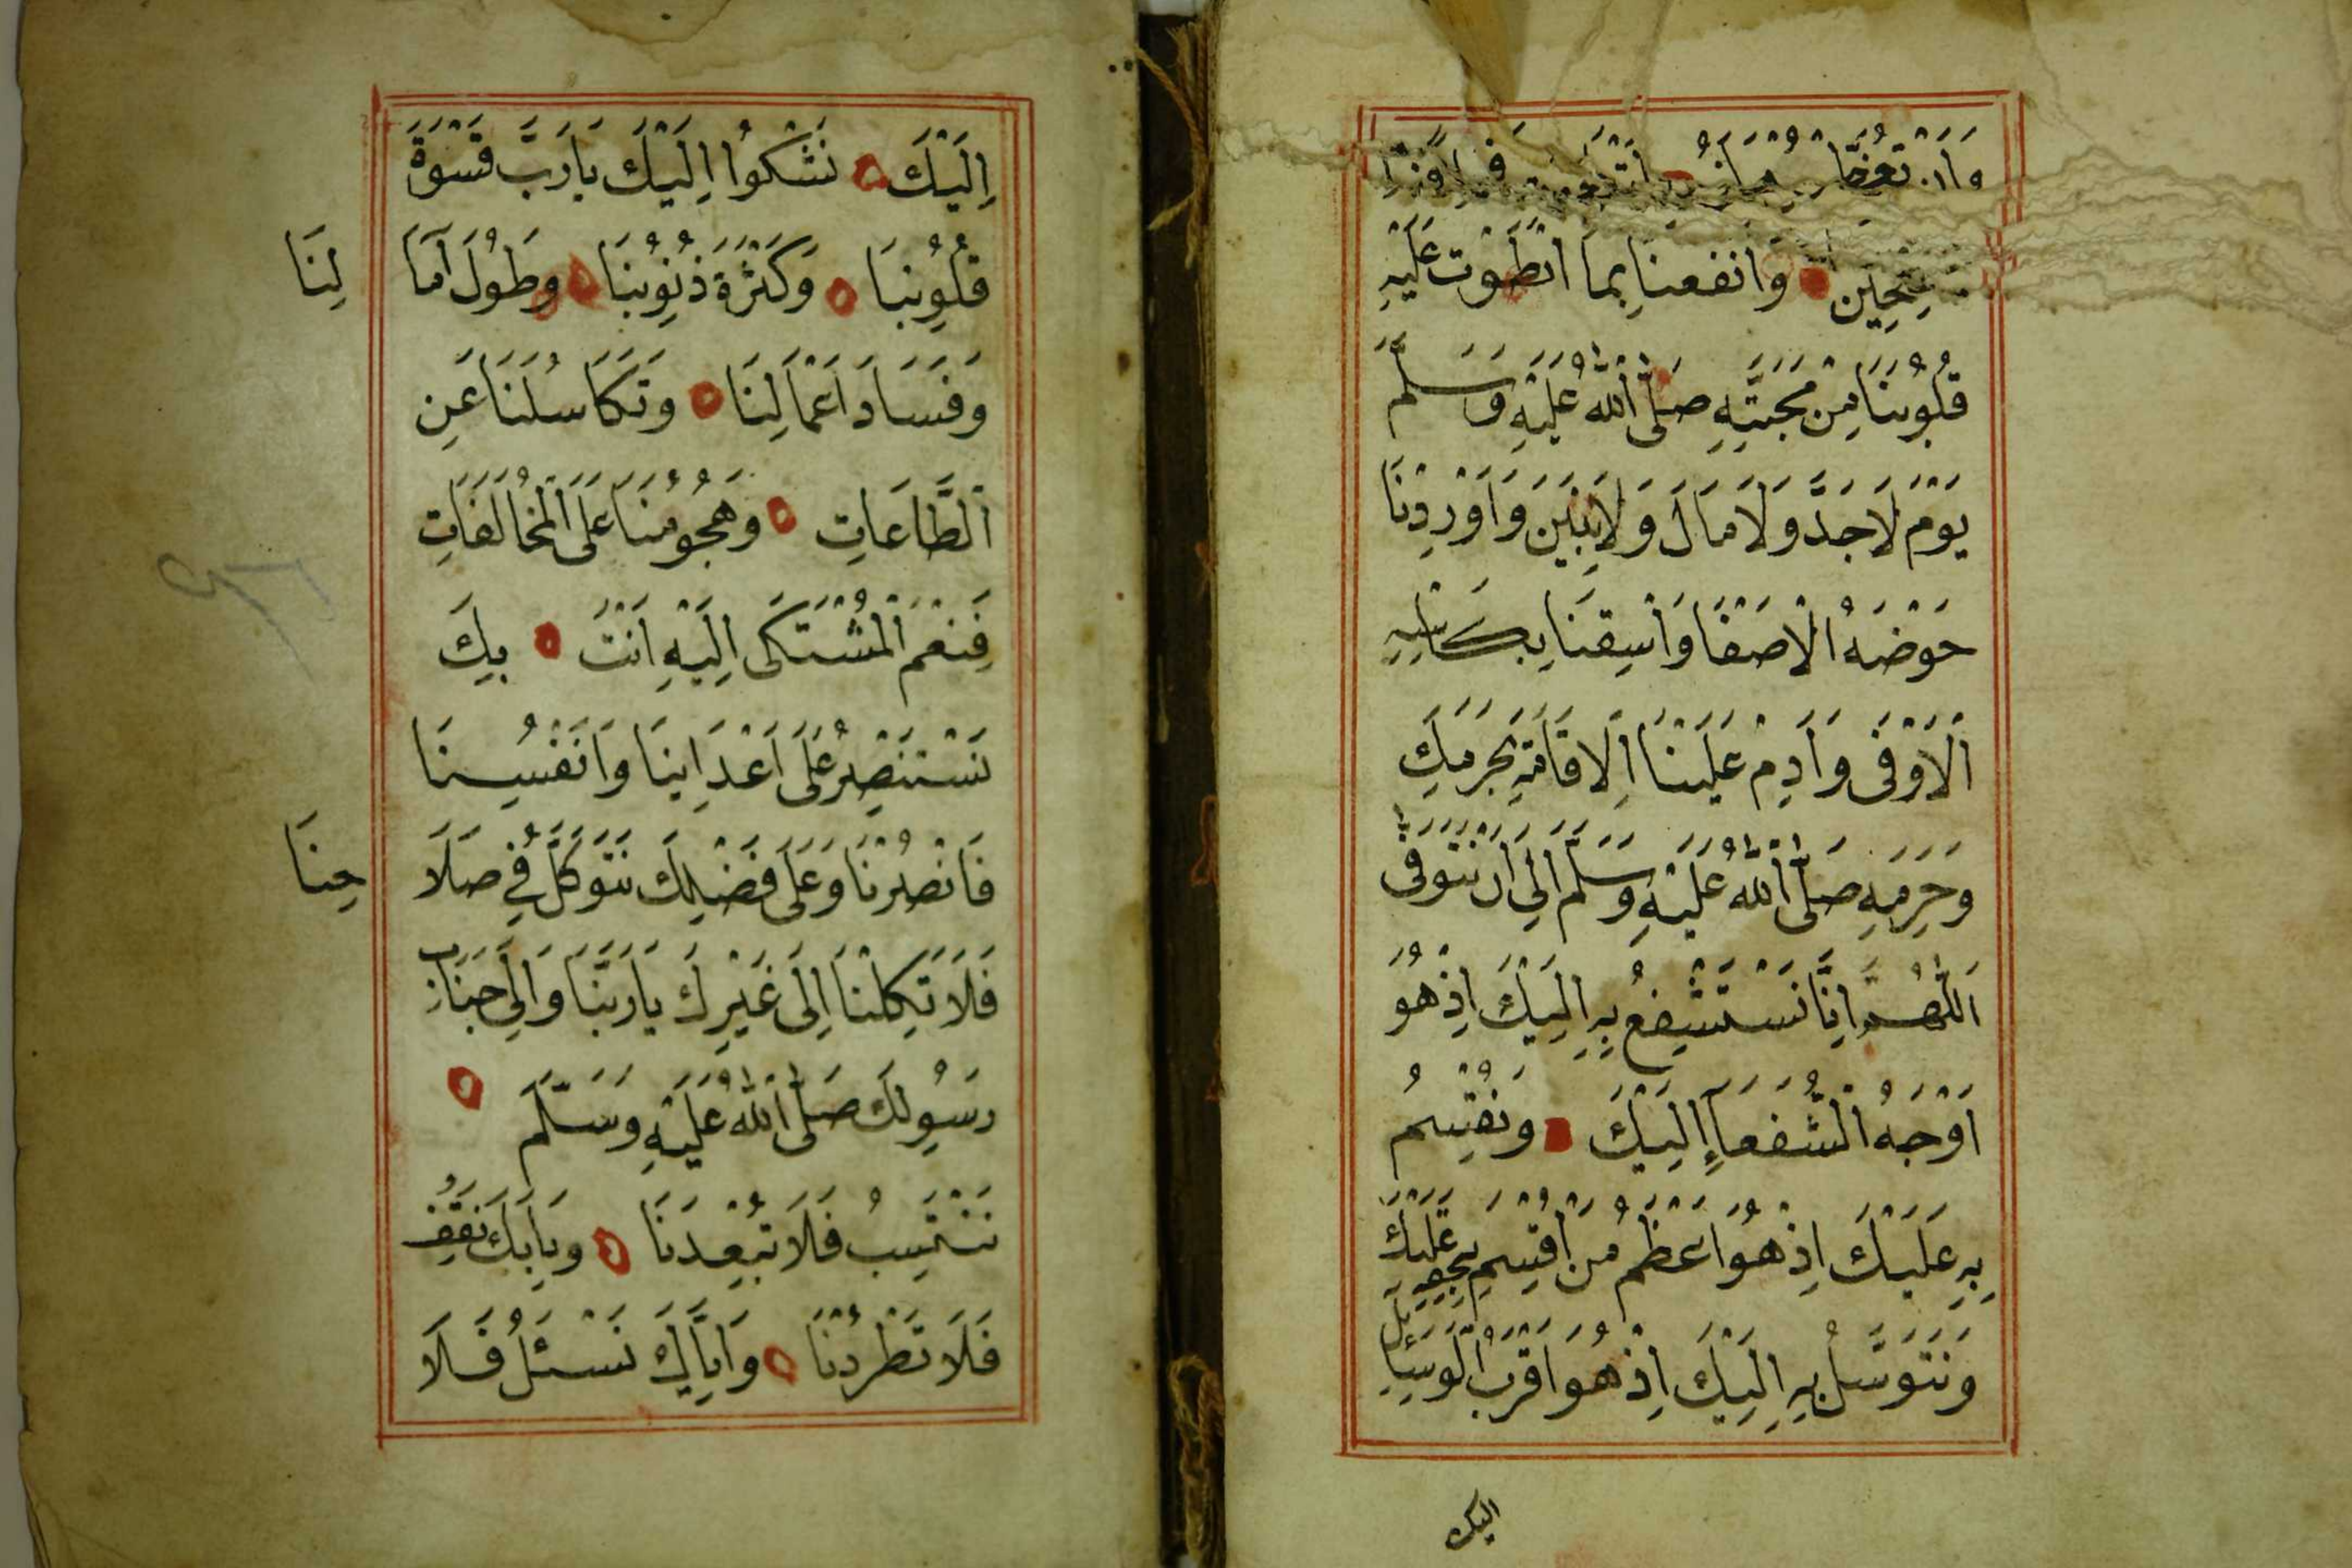 عِجِين وانفعنا بما انطَوت عَلَيْهِ
قُلُوبُنَا مِنْ مَحَبَّتِهِ صَلَّى اللهُ عَلَيْهِ وَسَلَّمَ
يَوْمَ لَا جَدَّ وَلَا مَالَ وَلَا بَنِينَ وَاَوْرِدْنَا
حَوْضَهُ الْاَصْفَا وَاَسْقِنَا بِكَاْسِهِ
اَلْاَوْفَى وَاَدِمْ عَلَيْنَا اِلَاقَامَةِ بِحَرَمِكَ
وَحَرَمِهِ صَلَّى اللهُ عَلَيْهِ وَسَلَّمَ اِلَى اَنْ نَتَوَفَّى
اَللّٰهُمَّ اِنَّا نَسْتَشْفِعُ بِهِ اِلَيْكَ اِذْ هُوَ
اَوْجَهُ الشُّفَعَآءِ اِلَيْكَ وَنُقْسِمُ
بِهِ عَلَيْكَ اِذْ هُوَ اَعْظَمُ مَنْ اُقْسِمَ بِحَقِّهِ عَلَيْكَ
وَنَتَوَسَّلُ بِهِ اِلَيْكَ اِذْ هُوَ اَقْرَبُ الْوَسَائِلِ
اليك
اِلَيْكَ نَشْكُوا اِلَيْكَ يَا رَبَّ قَسْوَةَ
قُلُوبِنَا وَكَثْرَةَ ذُنُوبِنَا وَطُولَ آمَالِنَا
وَفَسَادَ اَعْمَالِنَا وَتَكَاسُلَنَا عَنِ
الطَّاعَاتِ وَهُجُومَنَا عَلَى الْمُخَالَفَاتِ
فَنِعْمَ الْمُشْتَكَى اِلَيْهِ اَنْتَ بِكَ
نَسْتَنْصِرُ عَلَى اَعْدَاينَا وَاَنْفُسِنَا
فَانْصُرْنَا وَعَلَى فَضْلِكَ نَتَوَكَّلُ فِي صَلَاحِنَا
فَلَا تَكِلْنَا اِلَى غَيْرِكَ يَا رَبَّنَا وَاِلَى جَنَابِ
رَسُولِكَ صَلَّى اللهُ عَلَيْهِ وَسَلَّمَ
نَنْتَسِبُ فَلَا تُبْعِدْنَا وَبِبَابِكَ نَقِفُ
فَلَا تَطْرُدْنَا وَاِيَّاكَ نَسْئَلُ فَلَا